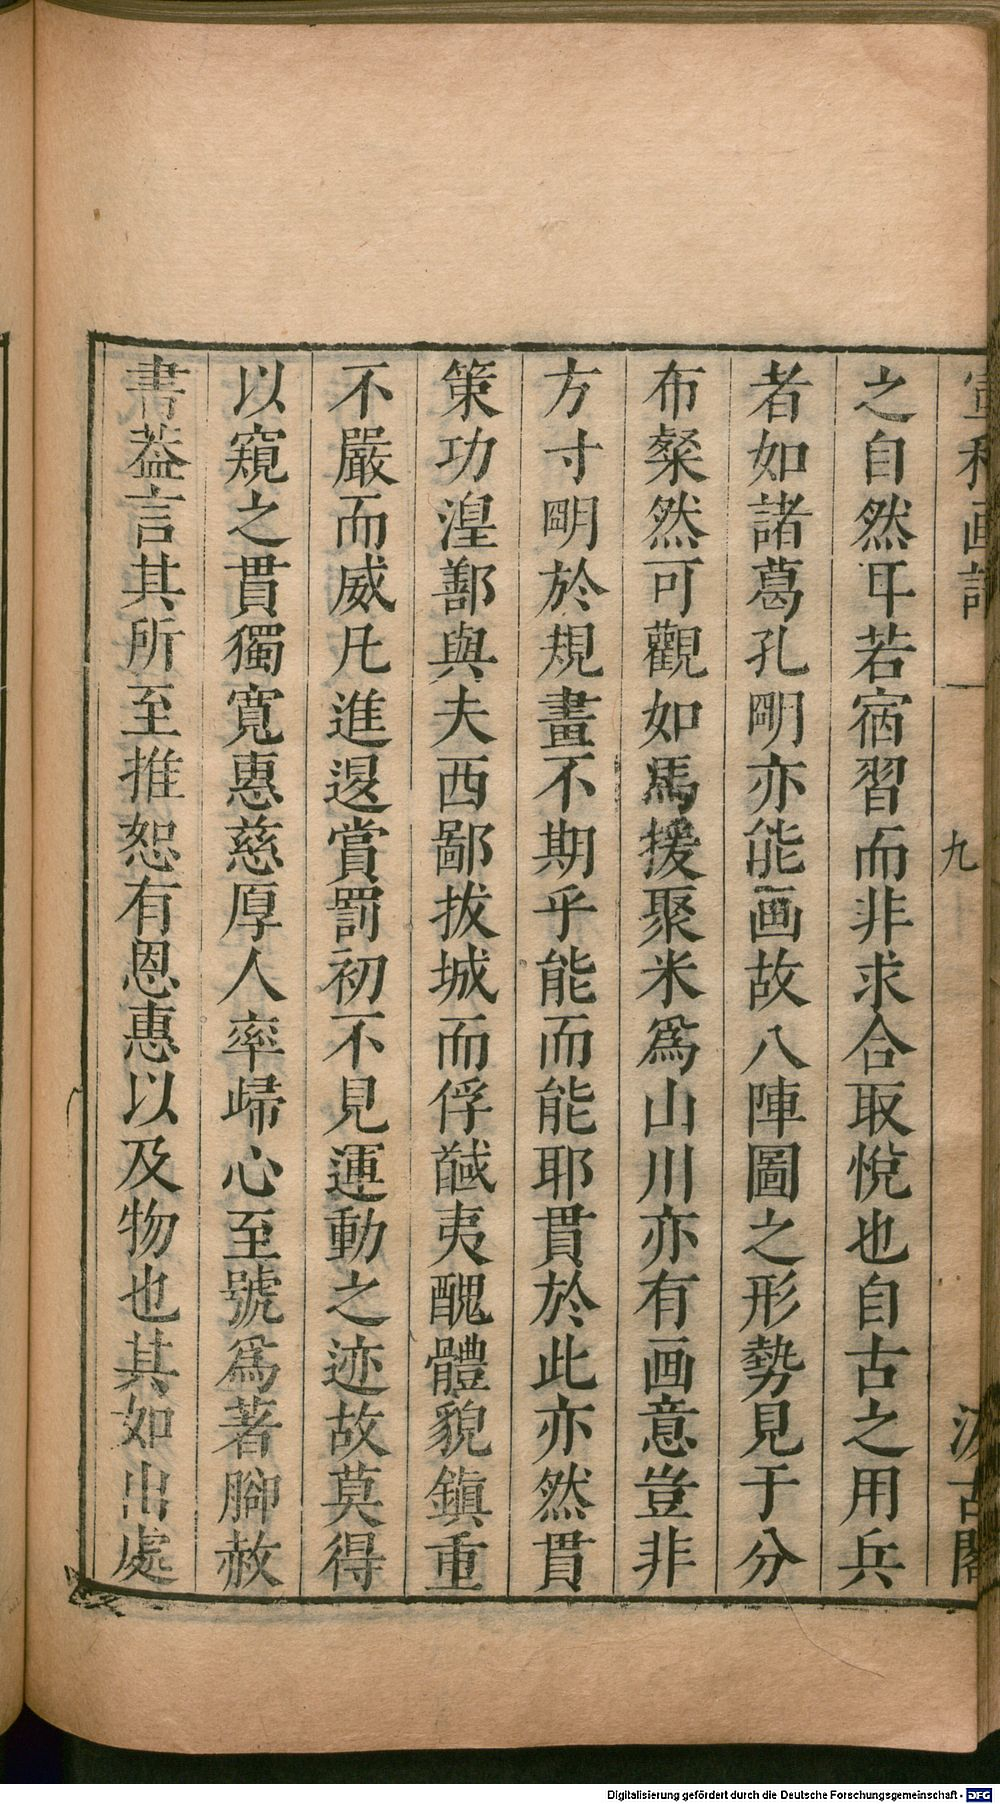 之自然耳若宿習而非求合取悅也自古之用兵
者如諸葛孔明亦能画故八陣圖之形勢見于分
布粲然可觀如馬援聚米為山川亦有画意豈非
方寸明於規畫不期乎能而能耶貫於此亦然貫
策功湟鄯與夫西鄙拔城而俘馘夷醜體貌鎮重
不嚴而威凡進退賞罰初不見運動之迹故莫得
以窺之貫獨寬惠慈厚人率歸心至號為著腳赦
書葢言其所至推恕有恩惠以及物也其如出處
九
Digitalisierung gefördert durch die Deutsche Forschungsgemeinschaft - DFG